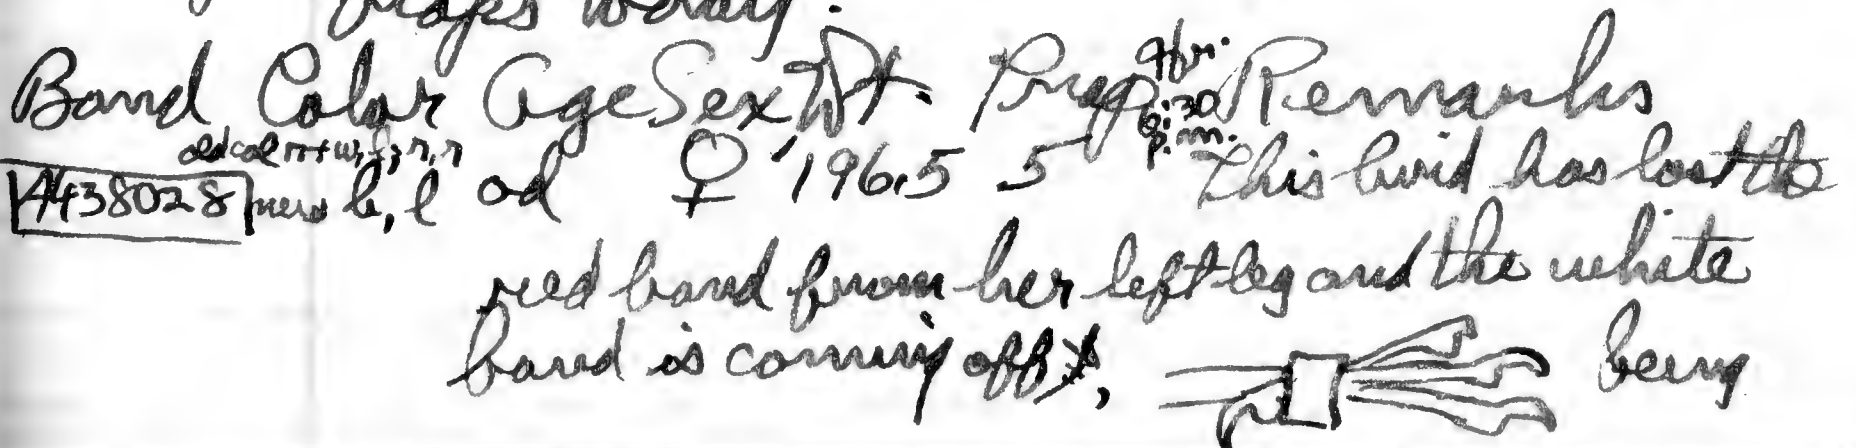 traps today.
Band Color Age Sex Wt. Prep. Hr. Remarks
old col r+w, r, r
A438028 new b, l ad ♀ 196.5 5 6:30 p.m. This bird has lost the
red band from her left leg and the white
band is coming off, being